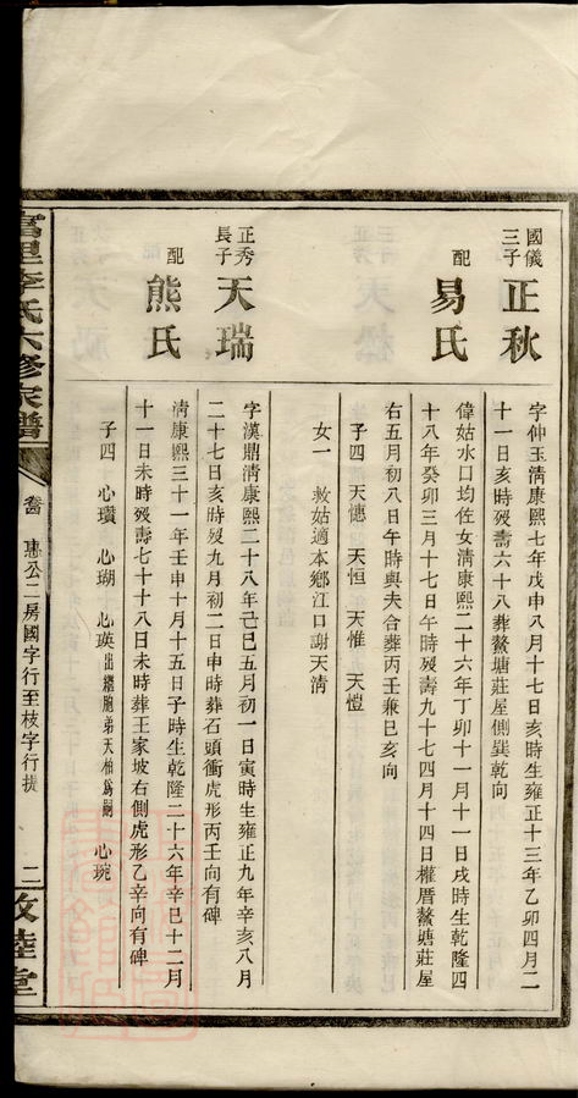 國儀
三子
正秋
字仲玉淸康熙七年戊申八月十七日亥時生雍正十三年乙卯四月二
十一日亥時歿壽六十八葬鰲塘莊屋側巽乾向
配
易氏
偉姑水口均佐女淸康熙二十六年丁卯十一月十一日戌時生乾隆四
十八年癸卯三月十七日午時歿壽九十七四月十四日權厝鰲塘莊屋
右五月初八日午時與夫合葬丙壬兼巳亥向
子四 天憓 天恒 天惟 天愷
女一 敕姑適本鄉江口謝天淸
正秀
長子
天瑞
字漢鼎淸康熙二十八年己巳五月初一日寅時生雍正九年辛亥八月
二十七日亥時歿九月初二日申時葬石頭衝虎形丙壬向有碑
配
熊氏
淸康熙三十一年壬申十月十五日子時生乾隆二十六年辛巳十二月
十一日未時歿壽七十十八日未時葬王家坡右側虎形乙辛向有碑
子四 心瓚 心瑚 心瑛出繼胞弟天柏爲嗣 心琬
富里李氏六修家譜
惠公二房國字行至枝字行
二
敦睦堂